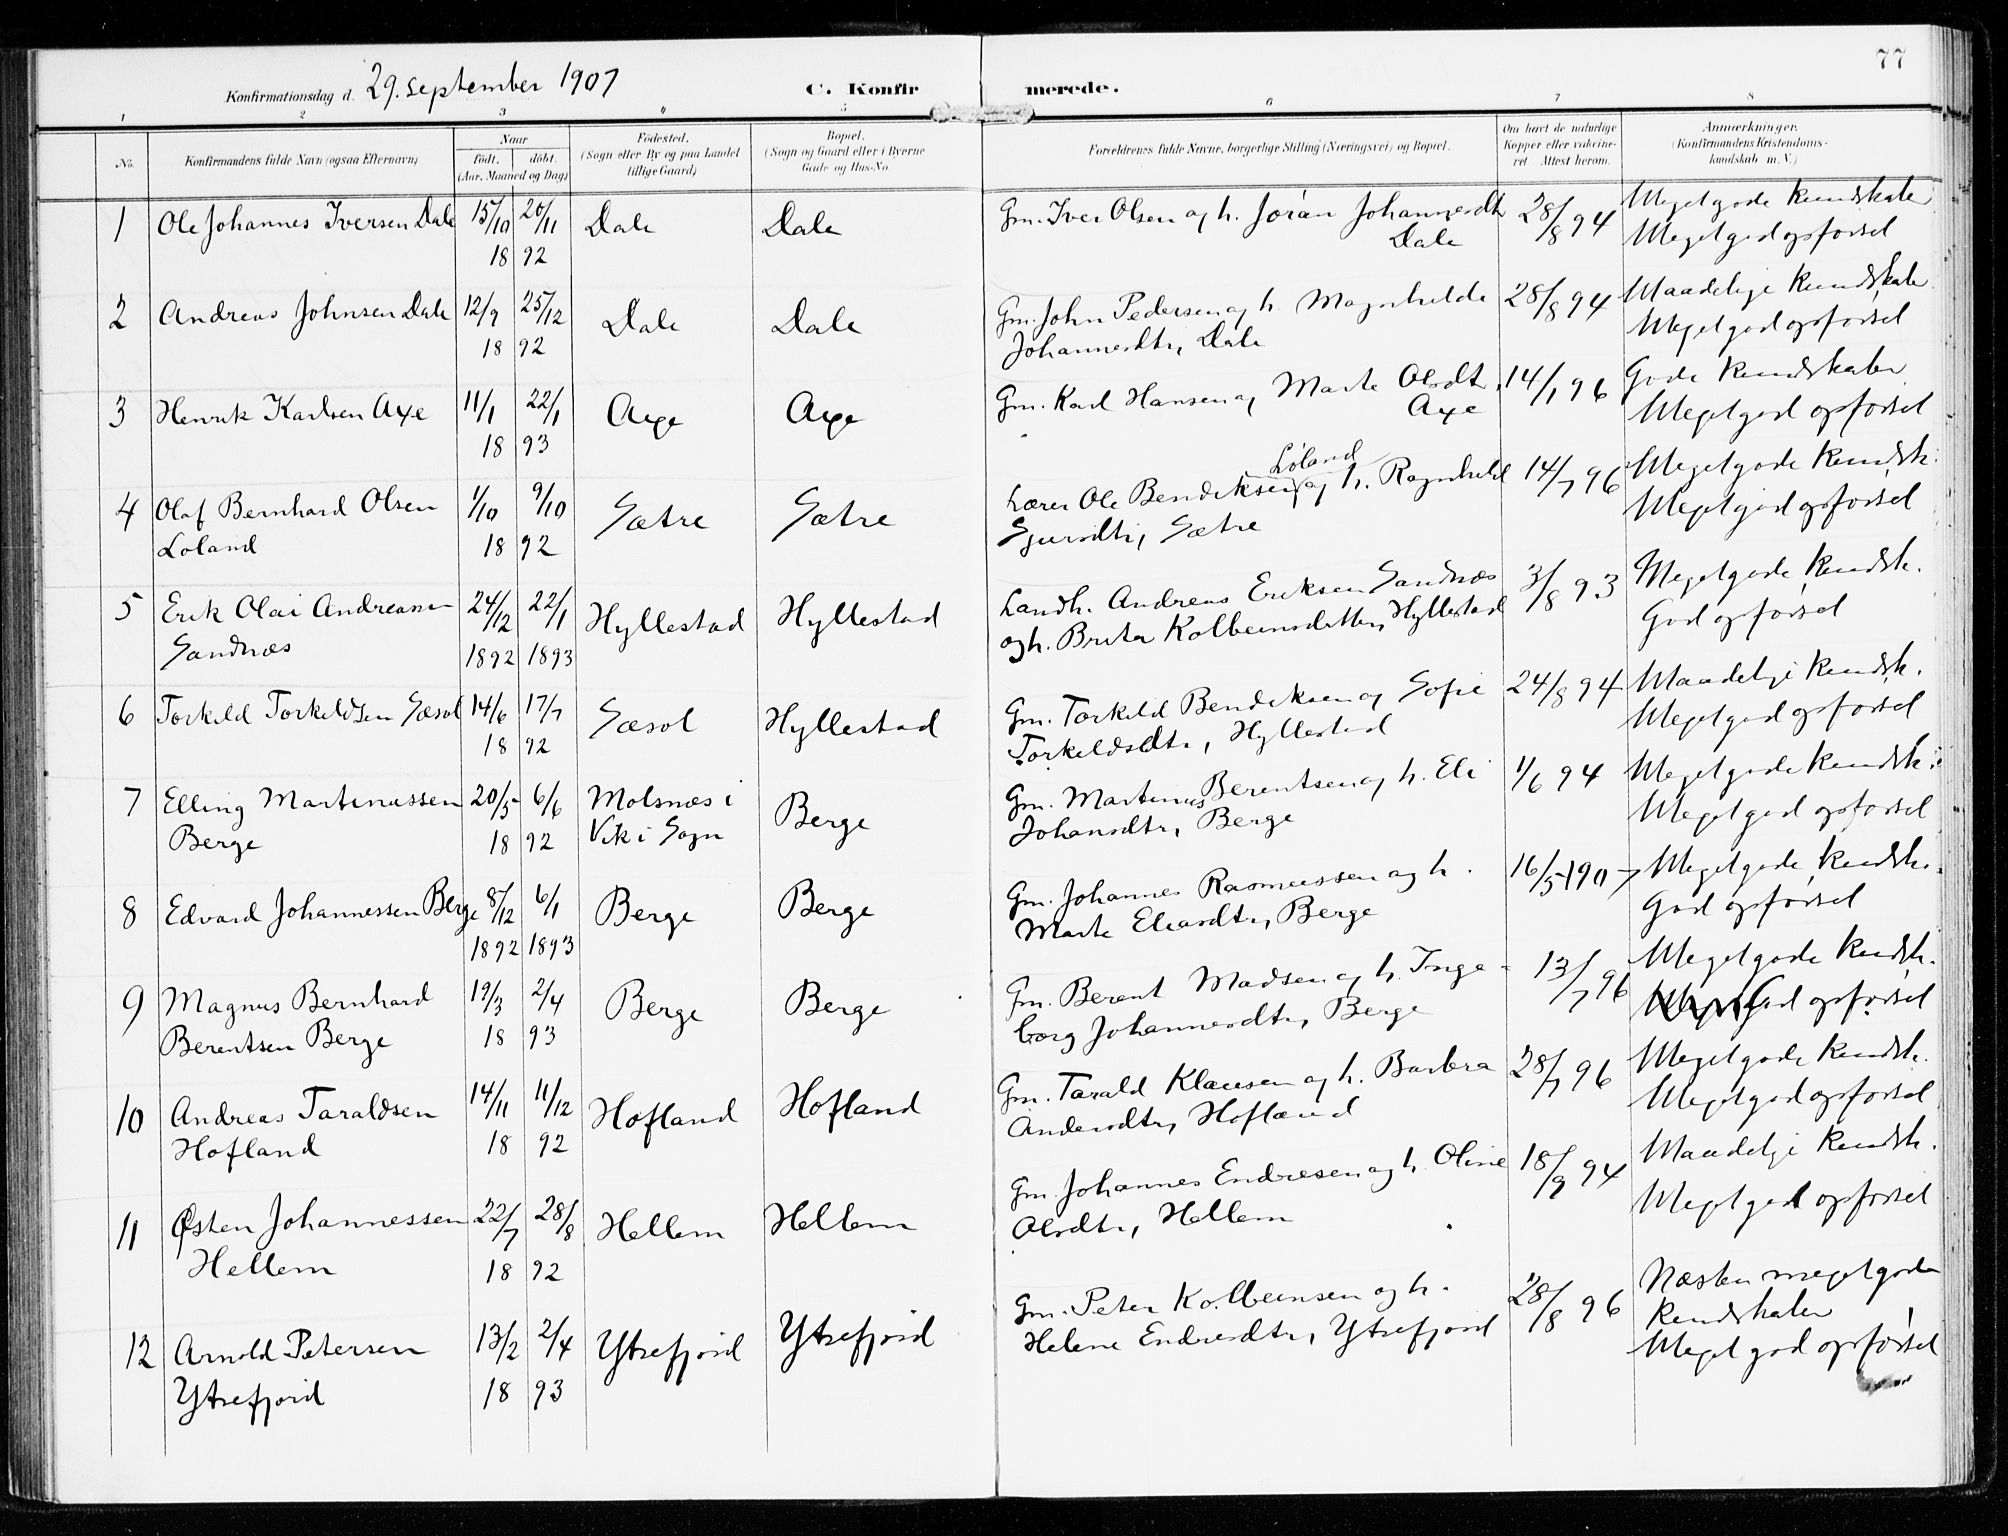 77
Konfirmationsdag d. 29. september 1907
C. Konfirmerede.
1 2 3 4 5 6 7 8
No.
Konfirmandens fulde Navn (ogsaa Efternavn)
Naar
födt. döbt.
(Aar, Maaned og Dag)
Födested.
(Sogn eller By og paa Landet
tillige Gaard)
Bopæl.
(Sogn og Gaard eller i Byerne
Gade og Hus-No.
Forældrenes fulde Navne, borgerlige Stilling (Næringsvei) og Bopæl.
Om havt de naturlige
Kopper eller vakcine-
ret Attest herom.
Anmærkninger.
(Konfirmandens Kristendoms-
kundskab m. V.)
1 Ole Johannes Iversen Dale 15/10 20/11 Dale Dale Gm. Iver Olsen og h. Jøran Johannesdtr 28/8 94 Meget gode Kundskaber
18 92 Dale Meget god opførsel
2 Andreas Johnsen Dale 12/9 25/12 Dale Dale Gm. John Pedersen og h. Magnhilde 28/8 94 Maadelige Kundskaber
18 92 Johannesdtr, Dale Meget god opførsel
3 Henrik Karlsen Axe 11/1 22/1 Axe Axe Gm. Karl Hansen og Marte Olsdtr, 14/1 96 Gode Kundskaber
18 93 Axe Meget god opførsel
Løland
4 Olaf Bernhard Olsen 1/10 9/10 Sætre Sætre Lærer Ole Bendiksen og h. Ragnhild 14/7 96 Meget gode Kundsk.
Løland 18 92 Sjursdtr, Sætre Meget god opførsel
5 Erik Olai Andreassen 24/12 22/1 Hyllestad Hyllestad Landh. Andreas Eriksen Sandnæs 3/8 93 Meget gode Kundsk.
Sandnæs 1892 1893 og h. Brita Kolbeinsdatter, Hyllestad God opførsel
6 Torkild Torkildsen Sæsol 14/6 17/7 Sæsol Hyllestad Gm. Torkild Bendiksen og Sofie 24/8 94 Maadelige Kundsk.
18 92 Torkildsdtr, Hyllestad Meget god opførsel
7 Elling Martinussen 20/5 6/6 Molsnæs i Berge Gm. Martinus Berentsen og h. Eli 1/6 94 Meget gode Kundsk.
Berge 18 92 Vik i Sogn Johansdtr, Berge Meget god opførsel
8 Edvard Johannessen Berge 8/12 6/1 Berge Berge Gm. Johannes Rasmussen og h. 16/5 1907 Meget gode Kundsk.
1892 1893 Marte Eliasdtr, Berge God opførsel
9 Magnus Bernhard 19/3 2/4 Berge Berge Gm. Berent Madsen og h. Inge- 13/7 96 Meget gode Kundsk.
Berentsen Berge 18 93 borg Johannesdtr, Berge God opførsel
10 Andreas Taraldsen 14/11 11/12 Hofland Hofland Gm. Tarald Klausen og h. Barbra 28/7 96 Meget gode Kundsk.
Hofland 18 92 Andersdtr, Hofland Meget god opførsel
11 Østen Johannessen 22/7 28/8 Hellem Hellem Gm. Johannes Endresen og h. Oline 18/9 94 Maadelige Kundsk.
Hellem 18 92 Olsdtr, Hellem Meget god opførsel
12 Arnold Petersen 13/2 2/4 Ytrefjord Ytrefjord Gm. Peter Kolbeinsen og h. 28/8 96 Næsten meget gode
Kundskaber
Ytrefjord 18 93 Helene Endresdtr, Ytrefjord Meget god opførsel